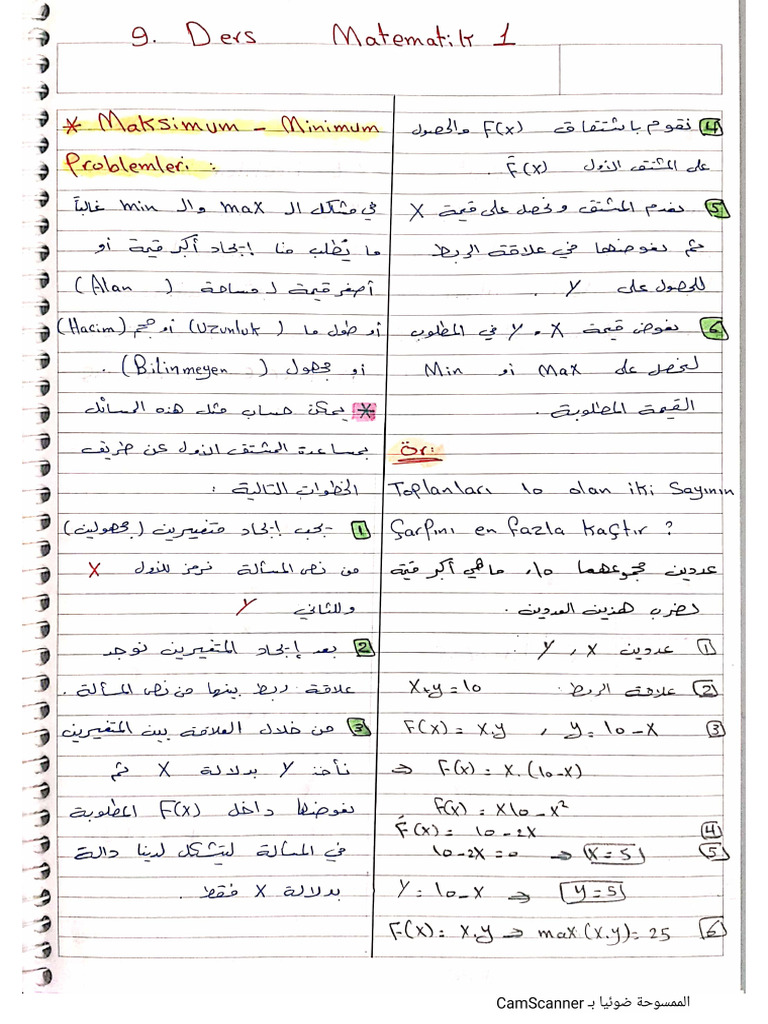 9. Ders Matematik 1
* Maksimum - Minimum
Problemleri :
في مشكل ال max وال min غالباً
ما يُطلب منا إيجاد أكبر قيمة أو
أصغر قيمة لمساحة (Alan)
أو طول ما (Uzunluk) أو حجم (Hacim)
أو مجهول (Bilinmeyen) .
* يمكن حساب مثل هذه المسائل
بمساعدة المشتق الأول عن طريق
الخطوات التالية :
1 يجب إيجاد متغيرين (مجهولين)
من نص المسألة نرمز للأول X
وللثاني Y
2 بعد إيجاد المتغيرين نوجد
علاقة ربط بينها من نص المسألة .
3 من خلال العلاقة بين المتغيرين
نأخذ Y بدلالة X ثم
نعوضها داخل F(x) المطلوبة
في المسألة ليتشكل لدينا دالة
بدلالة X فقط .
4 نقوم باشتقاق F(x) والحصول
على المشتق الأول F́(x) .
5 نعدم المشتق ونحصل على قيمة X
ثم نعوضها في علاقة الربط
للحصول على Y .
6 نعوض قيمة X و Y في المطلوب
لنحصل على Max أو Min
القيمة المطلوبة .
Ör:
Toplanları 10 olan iki Sayının
Çarpını en fazla Kaçtır ?
عددين مجموعهما 10، ما هي أكبر قيمة
لضرب هذين العددين .
1 عددين X ، Y
2 علاقة الربط : X+y=10
3 F(x) = x.y , y = 10-x
⇒ F(x) = x.(10-x)
F(x) = x10-x²
4 F́(x) = 10-2x
5 10-2x=0 ⇒ x=5
Y = 10-x ⇒ y=5
6 F(x) = x.y ⇒ max(x.y) = 25
الممسوحة ضوئيا بـ CamScanner